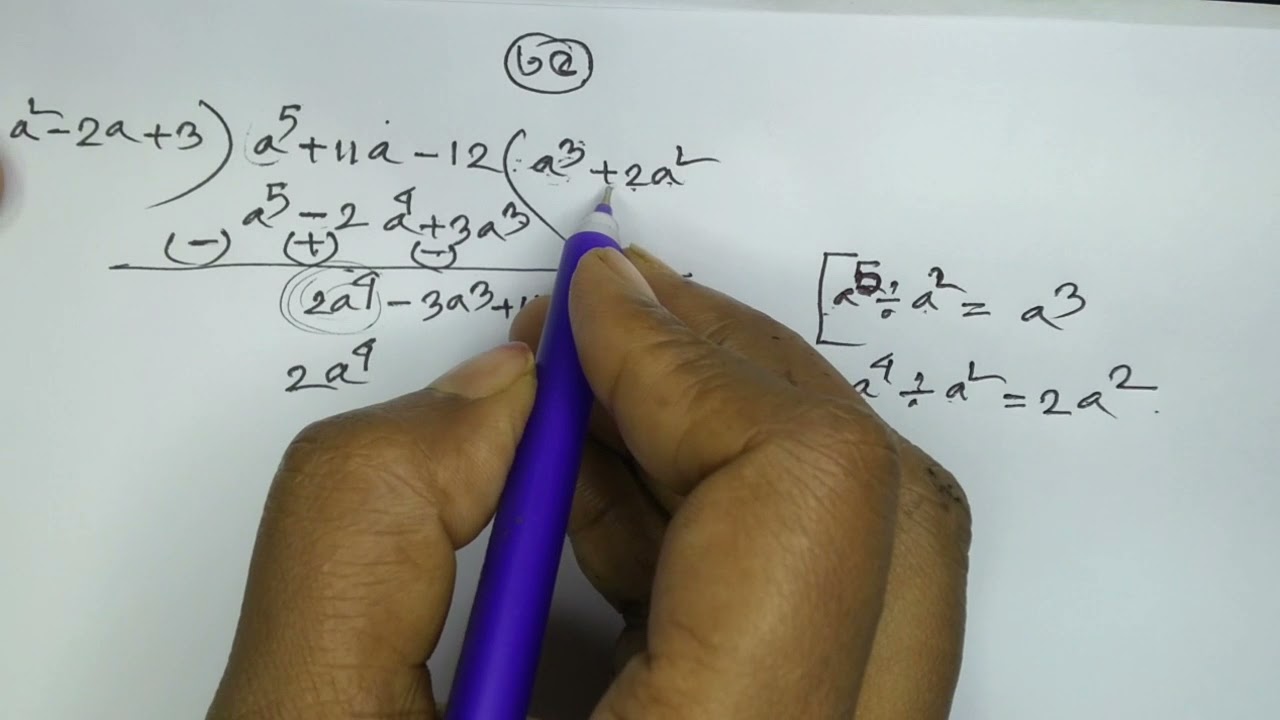 a² - 2a + 3 ) a⁵ + 11a - 12 ( a³ + 2a²
a⁵ - 2a⁴ + 3a³
(-) (+) (-)
2a⁴ - 3a³ +
2a⁴
[a⁵ ÷ a² = a³
a⁴ ÷ a² = 2a²